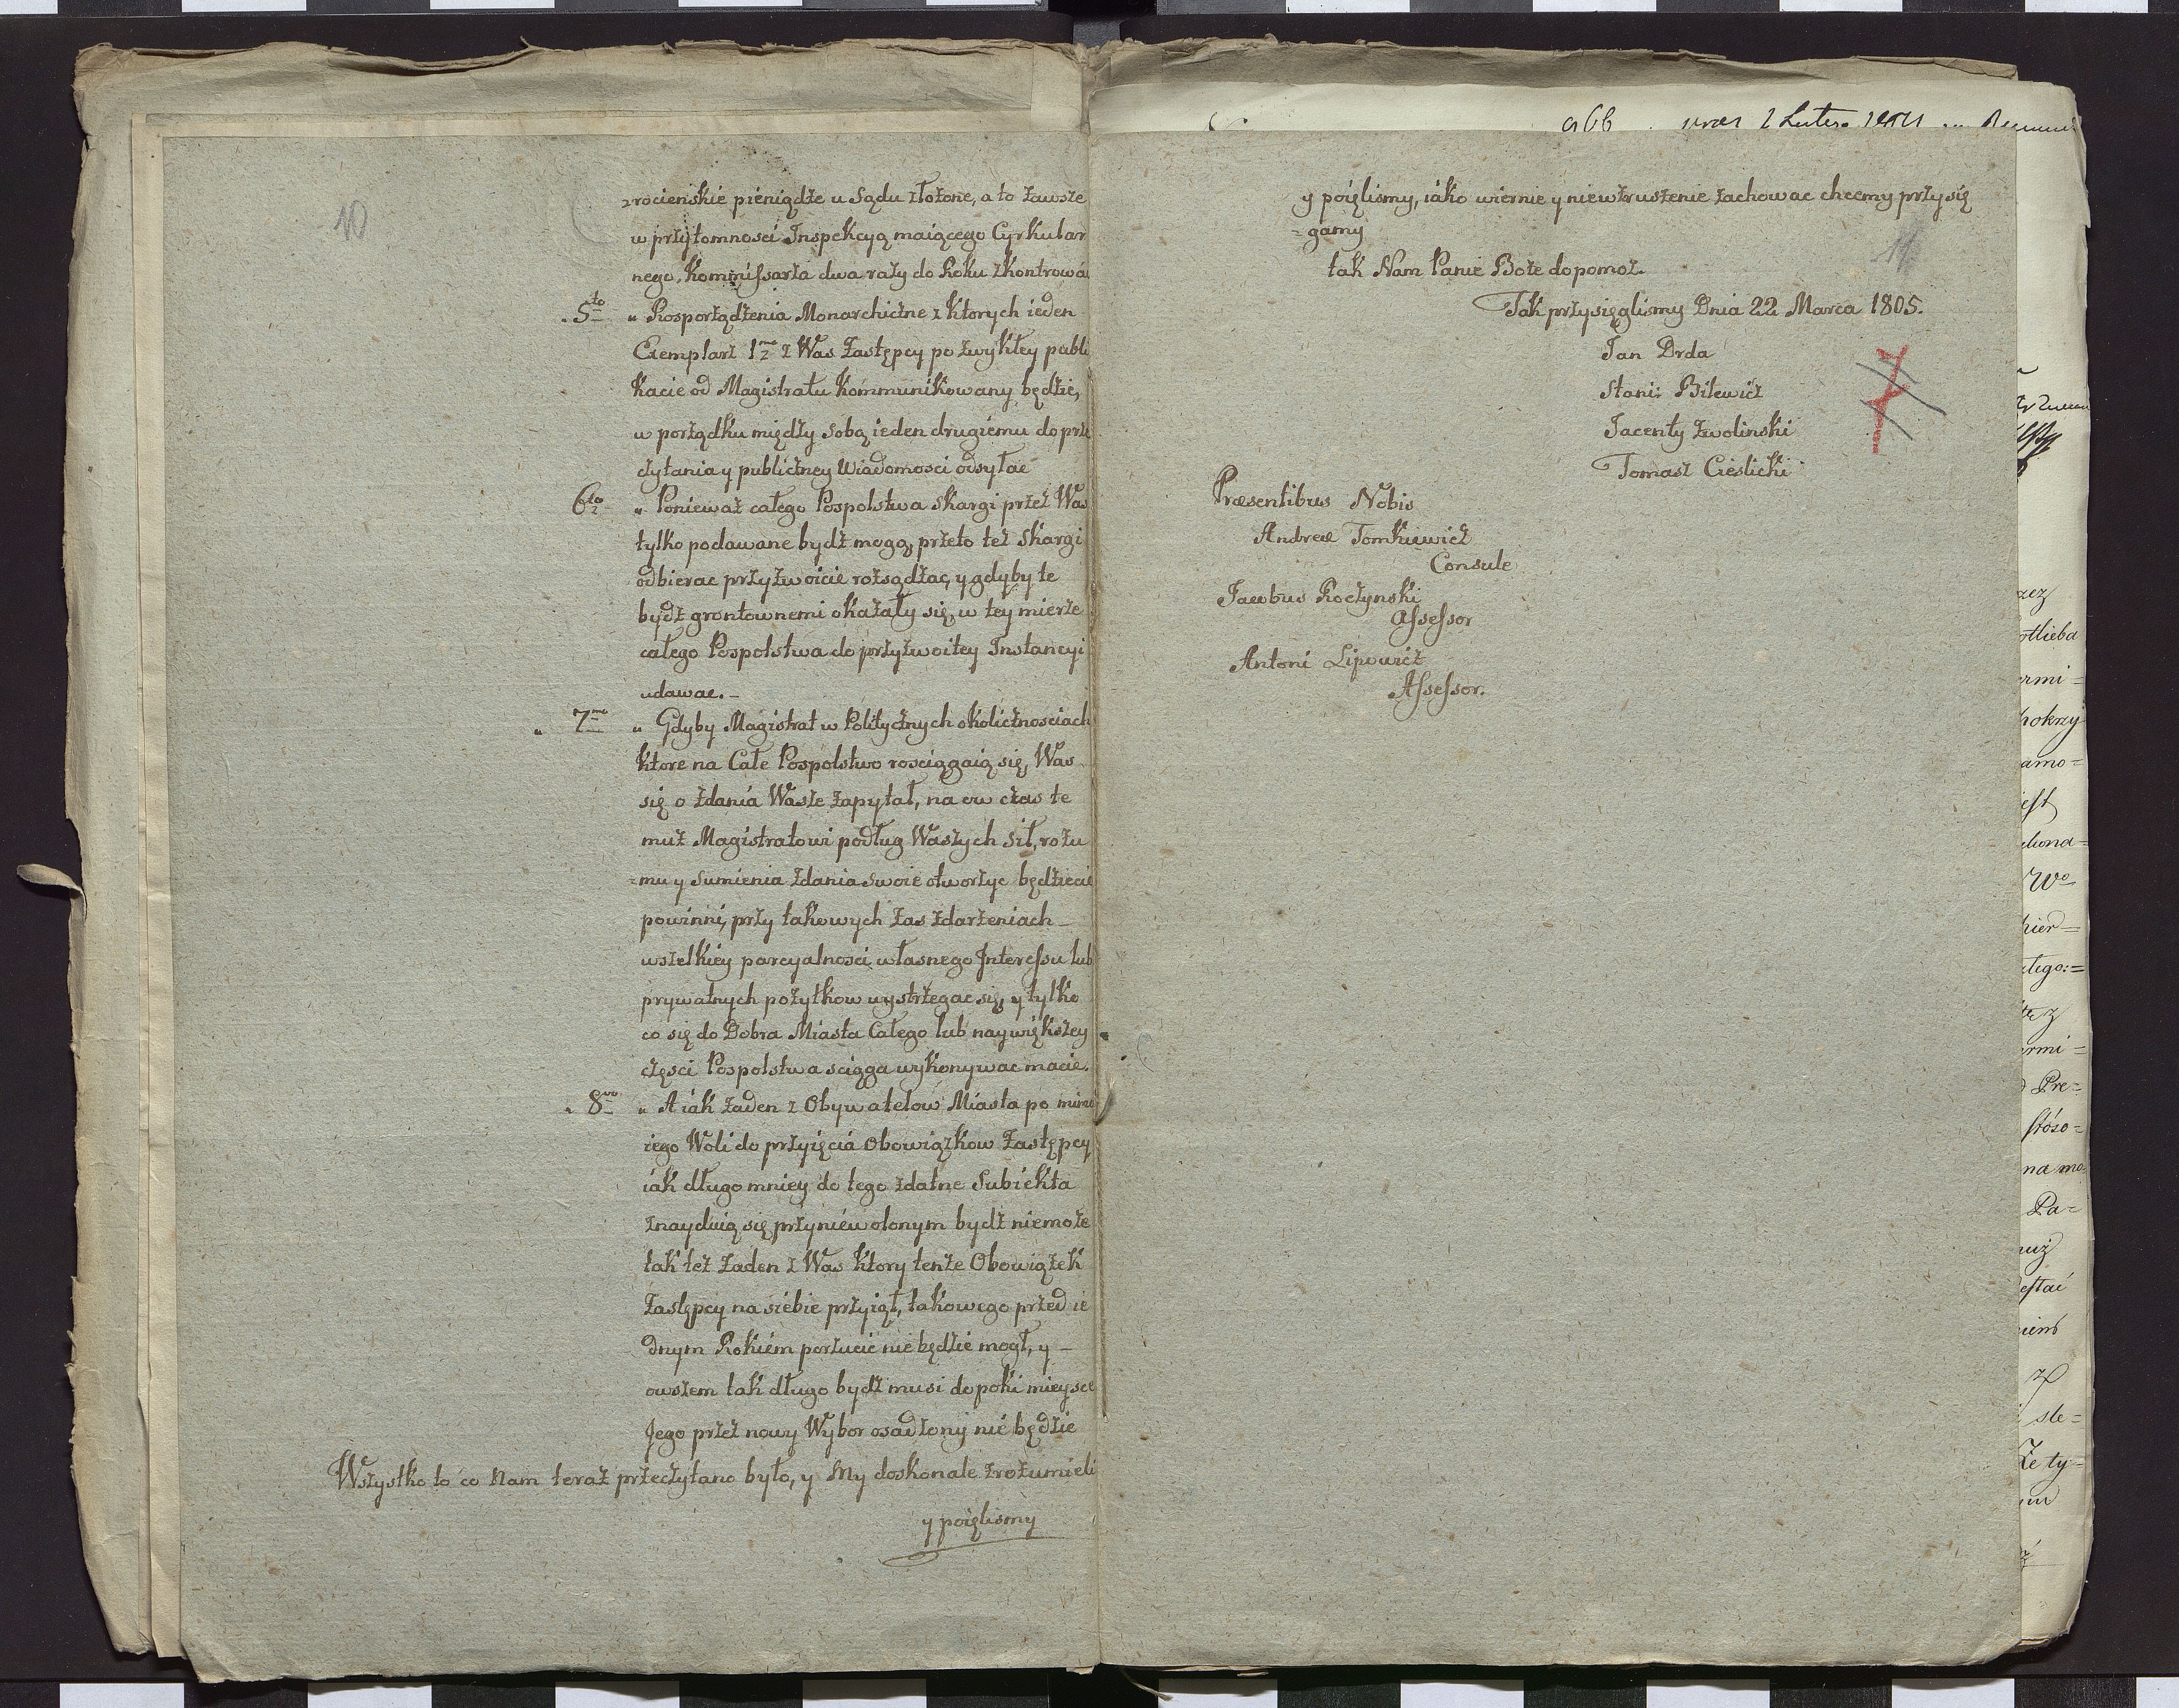 10
rocienskie pieniądże u Sądu złożone, a to żawsze
w przytomnosci Inspekcyą maiącego Cyrkular
nego, Kommissarża dwa razy do Roku zkontrowa
5to " Rosporządżenia Monarchiczne z ktorych ieden
Exemplarz 1mo z Was Zastępcy po zwykłey publi
kacie od Magistratu kommunikowany będzie,
w porządku między sobą ieden drugiemu do prze
czytania y publiczney Wiadomosci odsyłac
6to " Ponieważ całego Pospolstwa skargi przez Was
tylko podawane bydż mogą, przeto też skargi
odbierac przyzwoicie rozsądzac, y gdyby te
bydż grontownemi okazały się, w tey mierze
całego Pospolstwa do przyzwoitey Instancyi
udawac. -
" 7mo " Gdyby Magistrat w Politycznych okolicznosciach
ktore na Całe Pospolstwo rosciągaią się, Was
się o żdania Wasze zapytał, na ow czas te
muż Magistratowi podług Waszych sił, rozu
=mu y sumienia żdania swoie otworzyc będziecie
powinni, przy takowych zas zdarzeniach -
wszelkiey parcyalnosci własnego Interessu lub
prywatnych pożytkow wystrzegac się, y tylko
co się do Dobra Miasta Całego lub naywiększey
częsci Pospolstwa sciąga wykonywac macie.
" 8vo " A iak żaden z Obywatelow Miasta po mimo
iego Woli do przyięcia Obowiązkow Zastępcy
iak długo mniey do tego żdatne Subiekta
znayduią się przyniewolonym bydż niemoże
tak też żaden z Was ktory tenże Obowiązek
Zastępcy na siebie przyiął, takowego przed ie
dnym Rokiem porzucic nie będzie mogł, y -
owszem tak długo bydż musi dopoki mieysce
Jego przez nowy Wybor osadzony nie będzie
Wszystko to co Nam teraz przeczytano było, y My doskonale zrozumieli
y poięlismy
11
y poięlismy, iako wiernie y niewzruszenie zachowac chcemy przysię
=gamy
tak Nam Panie Boże dopomoż.
Tak przysięglismy Dnia 22 Marca 1805.
Jan Drda
Stanis Bilewicz
Jacenty Zwolinski
Tomasz Cieslicki
Præsentibus Nobis
Andreæ Tomkiewicz
Consule
Jacobus Roczynski
Assessor
Antoni Lipowicz
Assessor.